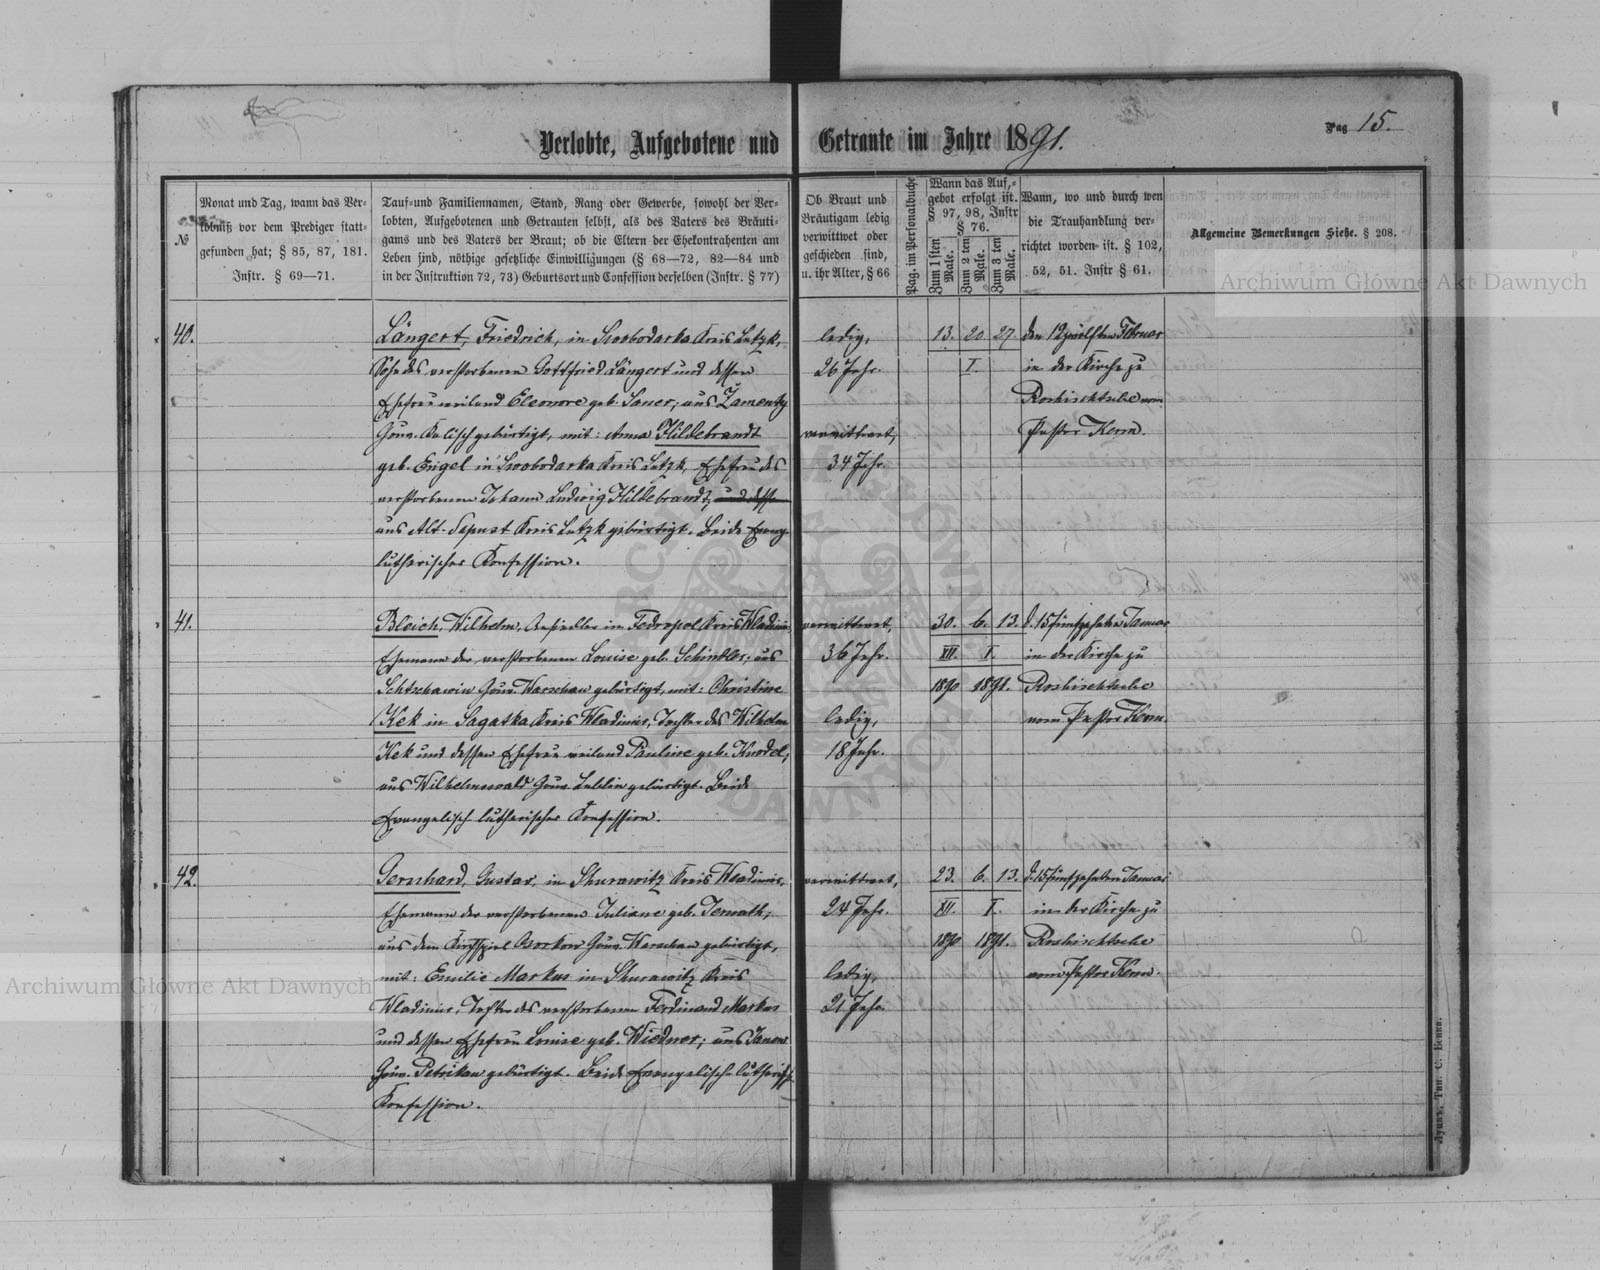 Verlobte, Aufgebotene und Getraute im Jahre 1891.
Pag 15.
№
Monat und Tag, wann das Ver-
löbniß vor dem Prediger statt-
gefunden hat; § 85, 87, 181.
Instr. § 69—71.
Tauf- und Familiennamen, Stand, Rang oder Gewerbe, sowohl der Ver-
lobten, Aufgebotenen und Getrauten selbst, als des Vaters des Bräuti-
gams und des Vaters der Braut; ob die Eltern der Ehekontrahenten am
Leben sind, nöthige gesetzliche Einwilligungen (§ 68—72, 82—84 und
in der Instruktion 72, 73) Geburtsort und Confession derselben (Instr. § 77)
Ob Braut und
Bräutigam ledig
verwittwet oder
geschieden sind,
u. ihr Alter, § 66
Pag. im Personalbuche
Wann das Auf-
gebot erfolgt ist.
§ 97, 98, Instr
§ 76.
Zum 1sten Male.
Zum 2ten Male.
Zum 3ten Male.
Wann, wo und durch wen
die Trauhandlung ver-
richtet worden ist. § 102,
52, 51. Instr § 61.
Allgemeine Bemerkungen Siehe. § 208.
40.
Längert, Friedrich, in Swobodarka Kreis Lutzk,
Sohn des verstorbenen Gottfried Längert und dessen
Ehefrau weiland Eleonore geb. Sauer; aus Zamenty
Gouv. Kalisch gebürtigt, mit: Anna Hildebrandt
geb. Engel in Swobodarka Kreis Lutzk, Ehefrau des
verstorbenen Johann Ludwig Hildebrandt, und dessen
aus Alt-Sapust Kreis Lutzk gebürtigt. Beide Evang.
lutherischer Konfession.
ledig,
26 Jahr.
verwittwet,
34 Jahr.
13. 20 27.
I.
den 12 zwölften Februar
in der Kirche zu
Roshischtsche vom
Pastor Kerm.
41.
Bleich, Wilhelm, Ansiedler in Fedropol Kreis Wladimir,
Ehemann der verstorbenen Louise geb. Schindler, aus
Schtschawin Gouv. Warschau gebürtigt, mit: Christine
Kek in Sagatka Kreis Wladimir, Tochter des Wilhelm
Kek und dessen Ehefrau weiland Pauline geb. Knodel,
aus Wilhelmswald Gouv. Lublin gebürtigt. Beide
Evangelisch lutherischer Konfession.
verwittwet,
36 Jahr.
ledig,
18 Jahr.
30. 6. 13.
XII. I.
1890 1891.
d. 15 fünfzehnten Januar
in der Kirche zu
Roshischtsche
vom Pastor Kerm.
42.
Gernhard, Gustav, in Shurawitz Kreis Wladimir,
Ehemann der verstorbenen Juliane geb. Jemath;
aus dem Kirchspiel Osorkow Gouv. Warschau gebürtigt,
mit: Emilie Markus in Shurawitz Kreis
Wladimir, Tochter des verstorbenen Ferdinand Markus
und dessen Ehefrau Louise geb. Wiedner; aus Janow
Gouv. Petrikau gebürtigt. Beide Evangelisch lutherisch
Konfession.
verwittwet,
24 Jahr.
ledig,
21 Jahr.
23. 6. 13.
XII. I.
1890 1891.
d. 15 fünfzehnten Januar
in der Kirche zu
Roshischtsche
vom Pastor Kerm.
Луцкъ, Тип. С. Бенка.
Archiwum Główne Akt Dawnych
Archiwum Główne Akt Dawnych